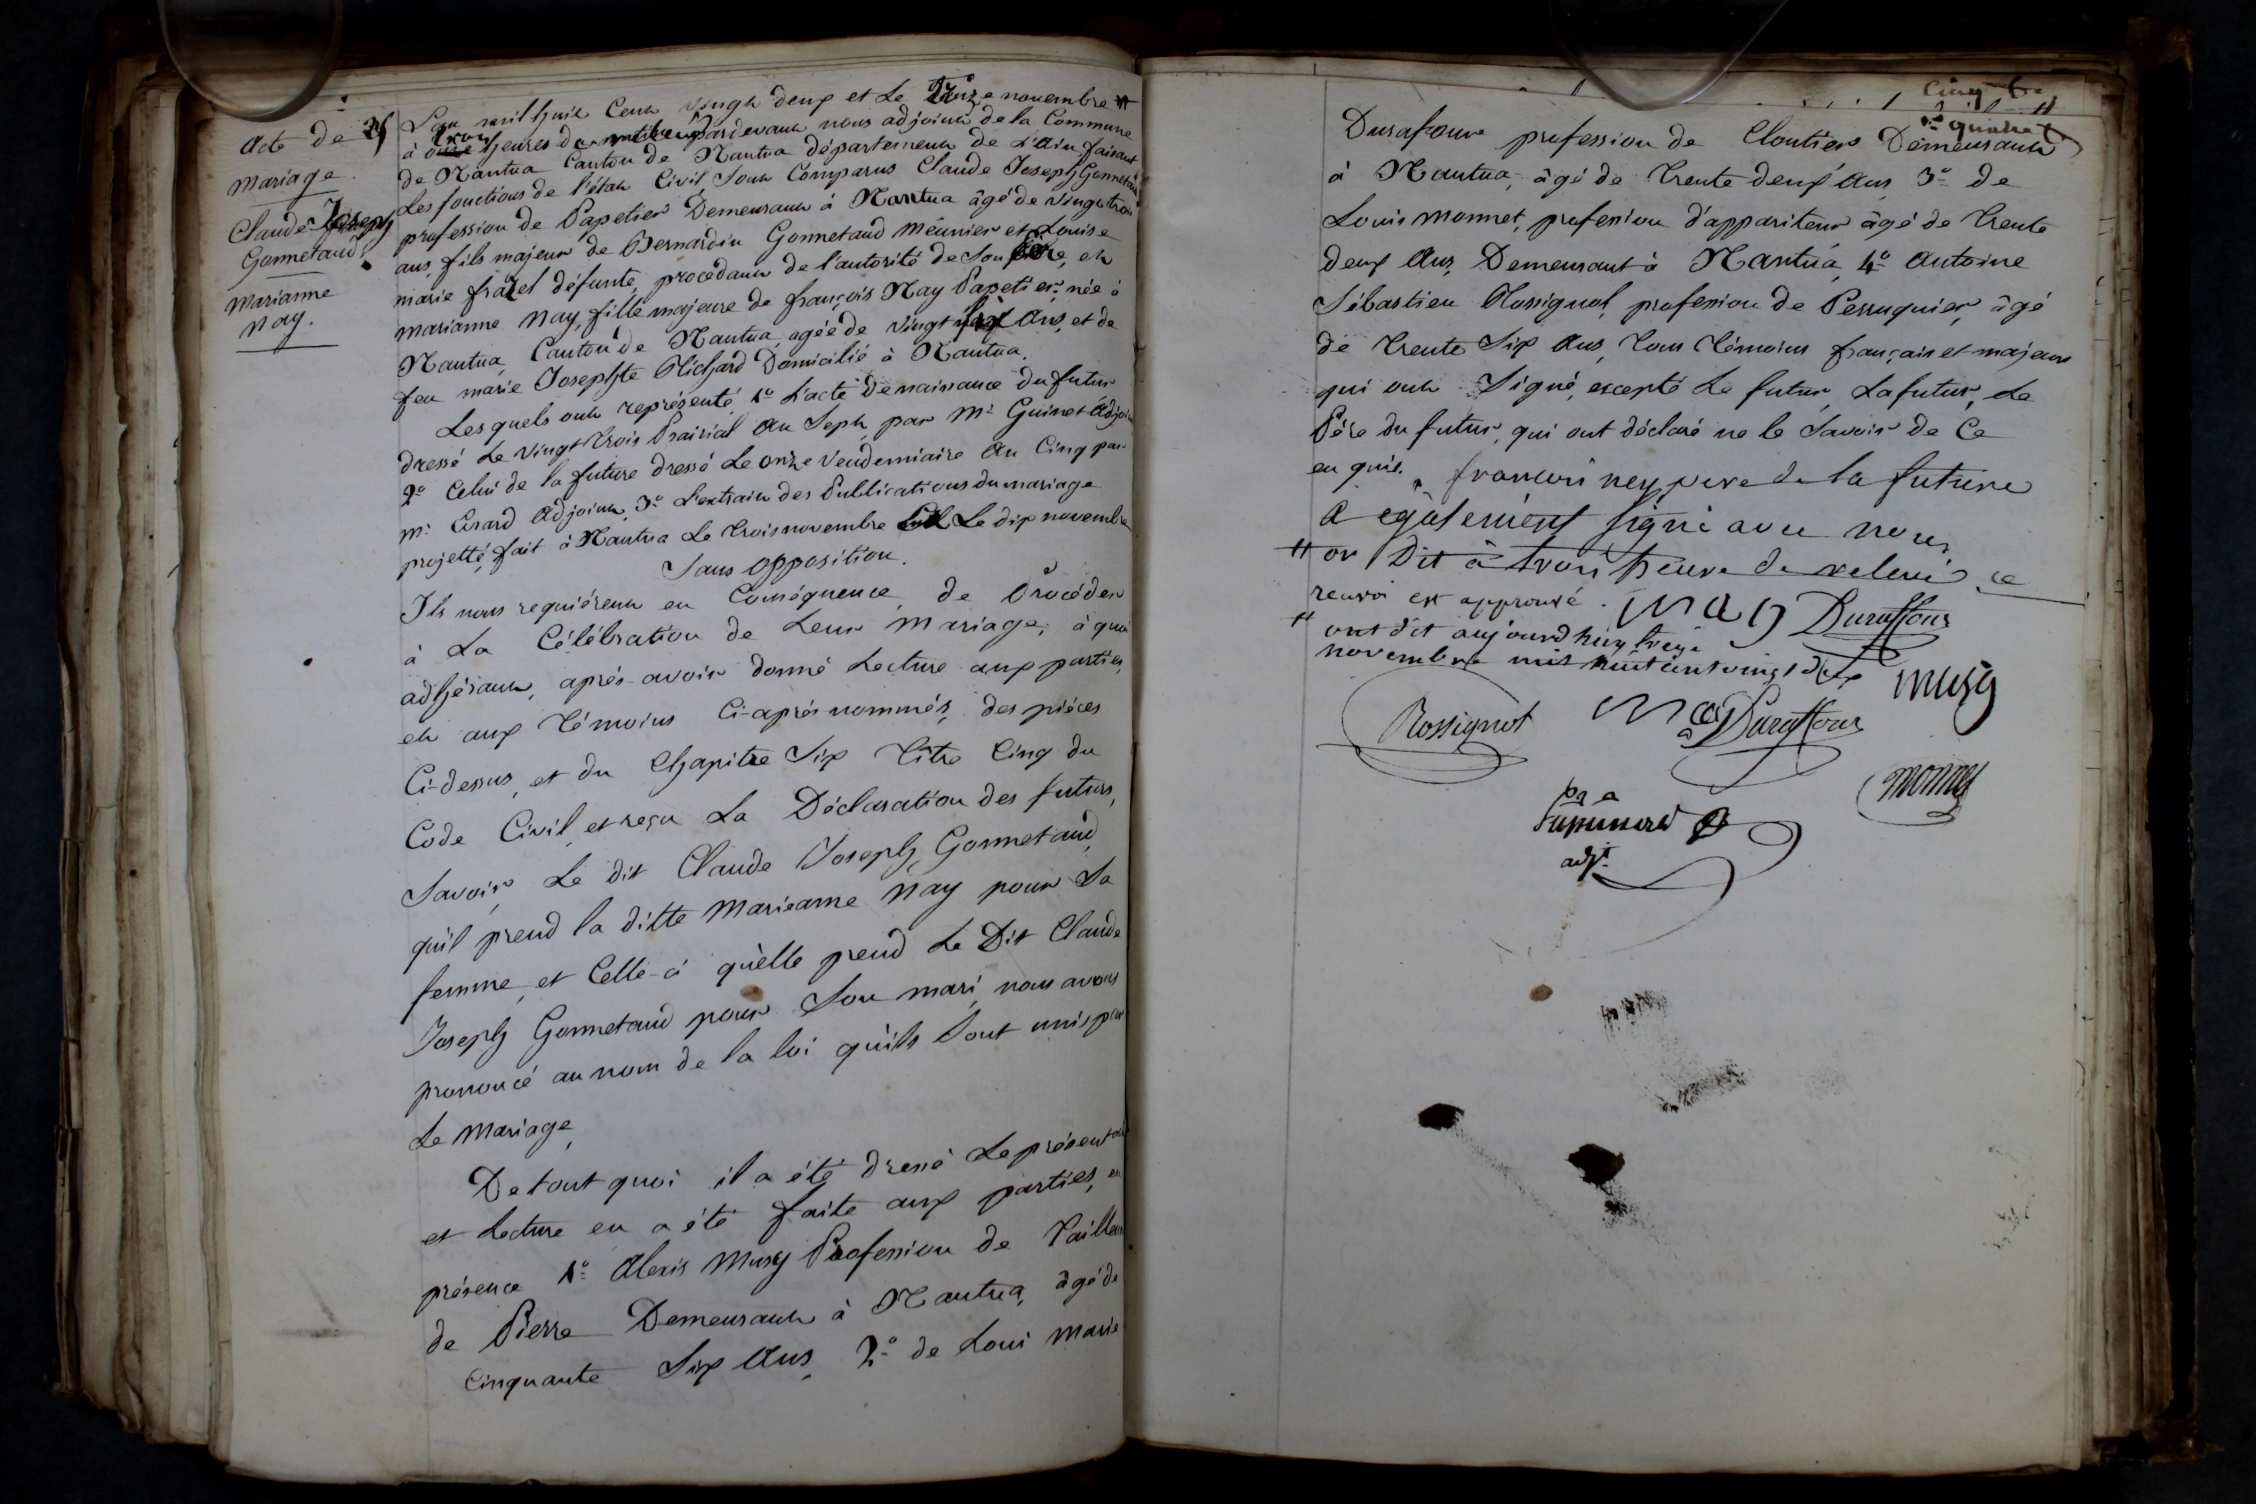 acte de 25
mariage.
Claude Joseph
Gonnetaud
marianne
nay.
L'an mil huit Cent vingt deux et le treize novembre
à trois heures de pardevant nous adjoint de la Commune
de Nantua Canton de Nantua département de L'Ain faisant
Les fonctions de l'état Civil, Sont Comparus Claude Joseph Gonnetaud
profession de Papetier Demeurant à Nantua âgé de vingt trois
ans, fils majeur de Bernardin Gonnetaud meunier et Louise
marie frazel défunte, procédant de l'autorité de Son père, et
marianne Nay, fille majeure de françois Nay Papetier, née à
Nantua, Canton de Nantua, agée de vingt six Ans, et de
feu marie Josephte Richard Domicilié à Nantua.
Lesquels ont représenté, 1º L'acte de naissance du futur
dressé Le vingt trois Prairial An Sept, par Mr Guinet Adjoint
2º Celui de la future dressé Le onze vendemiaire An Cinq par
mr Girard Adjoint, 3º L'extrait des Publications du mariage
projetté, fait à Nantua Le trois novembre Le dix novembre
Sans opposition.
Ils nous requiérent en Conséquence, de Procéder
à La Célébration de Leur mariage, à quoi
adhérant, après avoir donné Lecture aux parties,
et aux témoins Ci-après nommés, des pièces
Ci-dessus, et du Chapitre Six Titre Cinq du
Code Civil, et reçu La Déclaration des futurs,
Savoir, Le dit Claude Joseph Gonnetaud,
qu'il prend la ditte marieanne Nay pour Sa
femme, et Celle-ci qu'elle prend Le Dit Claude
Joseph Gonnetaud pour Son mari, nous avons
prononcé au nom de la loi qu'ils Sont unis par
Le mariage,
De tout quoi il a été dressé Le présent acte
et Lecture en a été faite aux parties, en
présence 1º Alexis Musy Profession de Tailleur
de Pierre Demeurant à Nantua, âgé de
Cinquante Six Ans, 2º de Loui Marie
Cinq
quatre
Durafour profession de Cloutier Demeurant
à Nantua, âgé de trente deux Ans 3º de
Louis monnet, profession d'appariteur âgé de trente
deux Ans, Demeurant à Nantua, 4º Antoine
Sébastien Rossignol, profession de Perruquier, âgé
de trente Six Ans, tous témoins français et majeurs
qui ont Signé, excepté Le futur, La futur, Le
Père du futur, qui ont déclaré ne le Savoir de Ce
enquis. françois ney pere de la future
a également signé avec nous
on Dit à trois heure de relevé ce
renvoi est approuvé. nay Duraffour
ont dit aujourdhuy treize
novembre mil huit cent vingt deux
musy
Rossignol
Duraffour
monnet
adjt